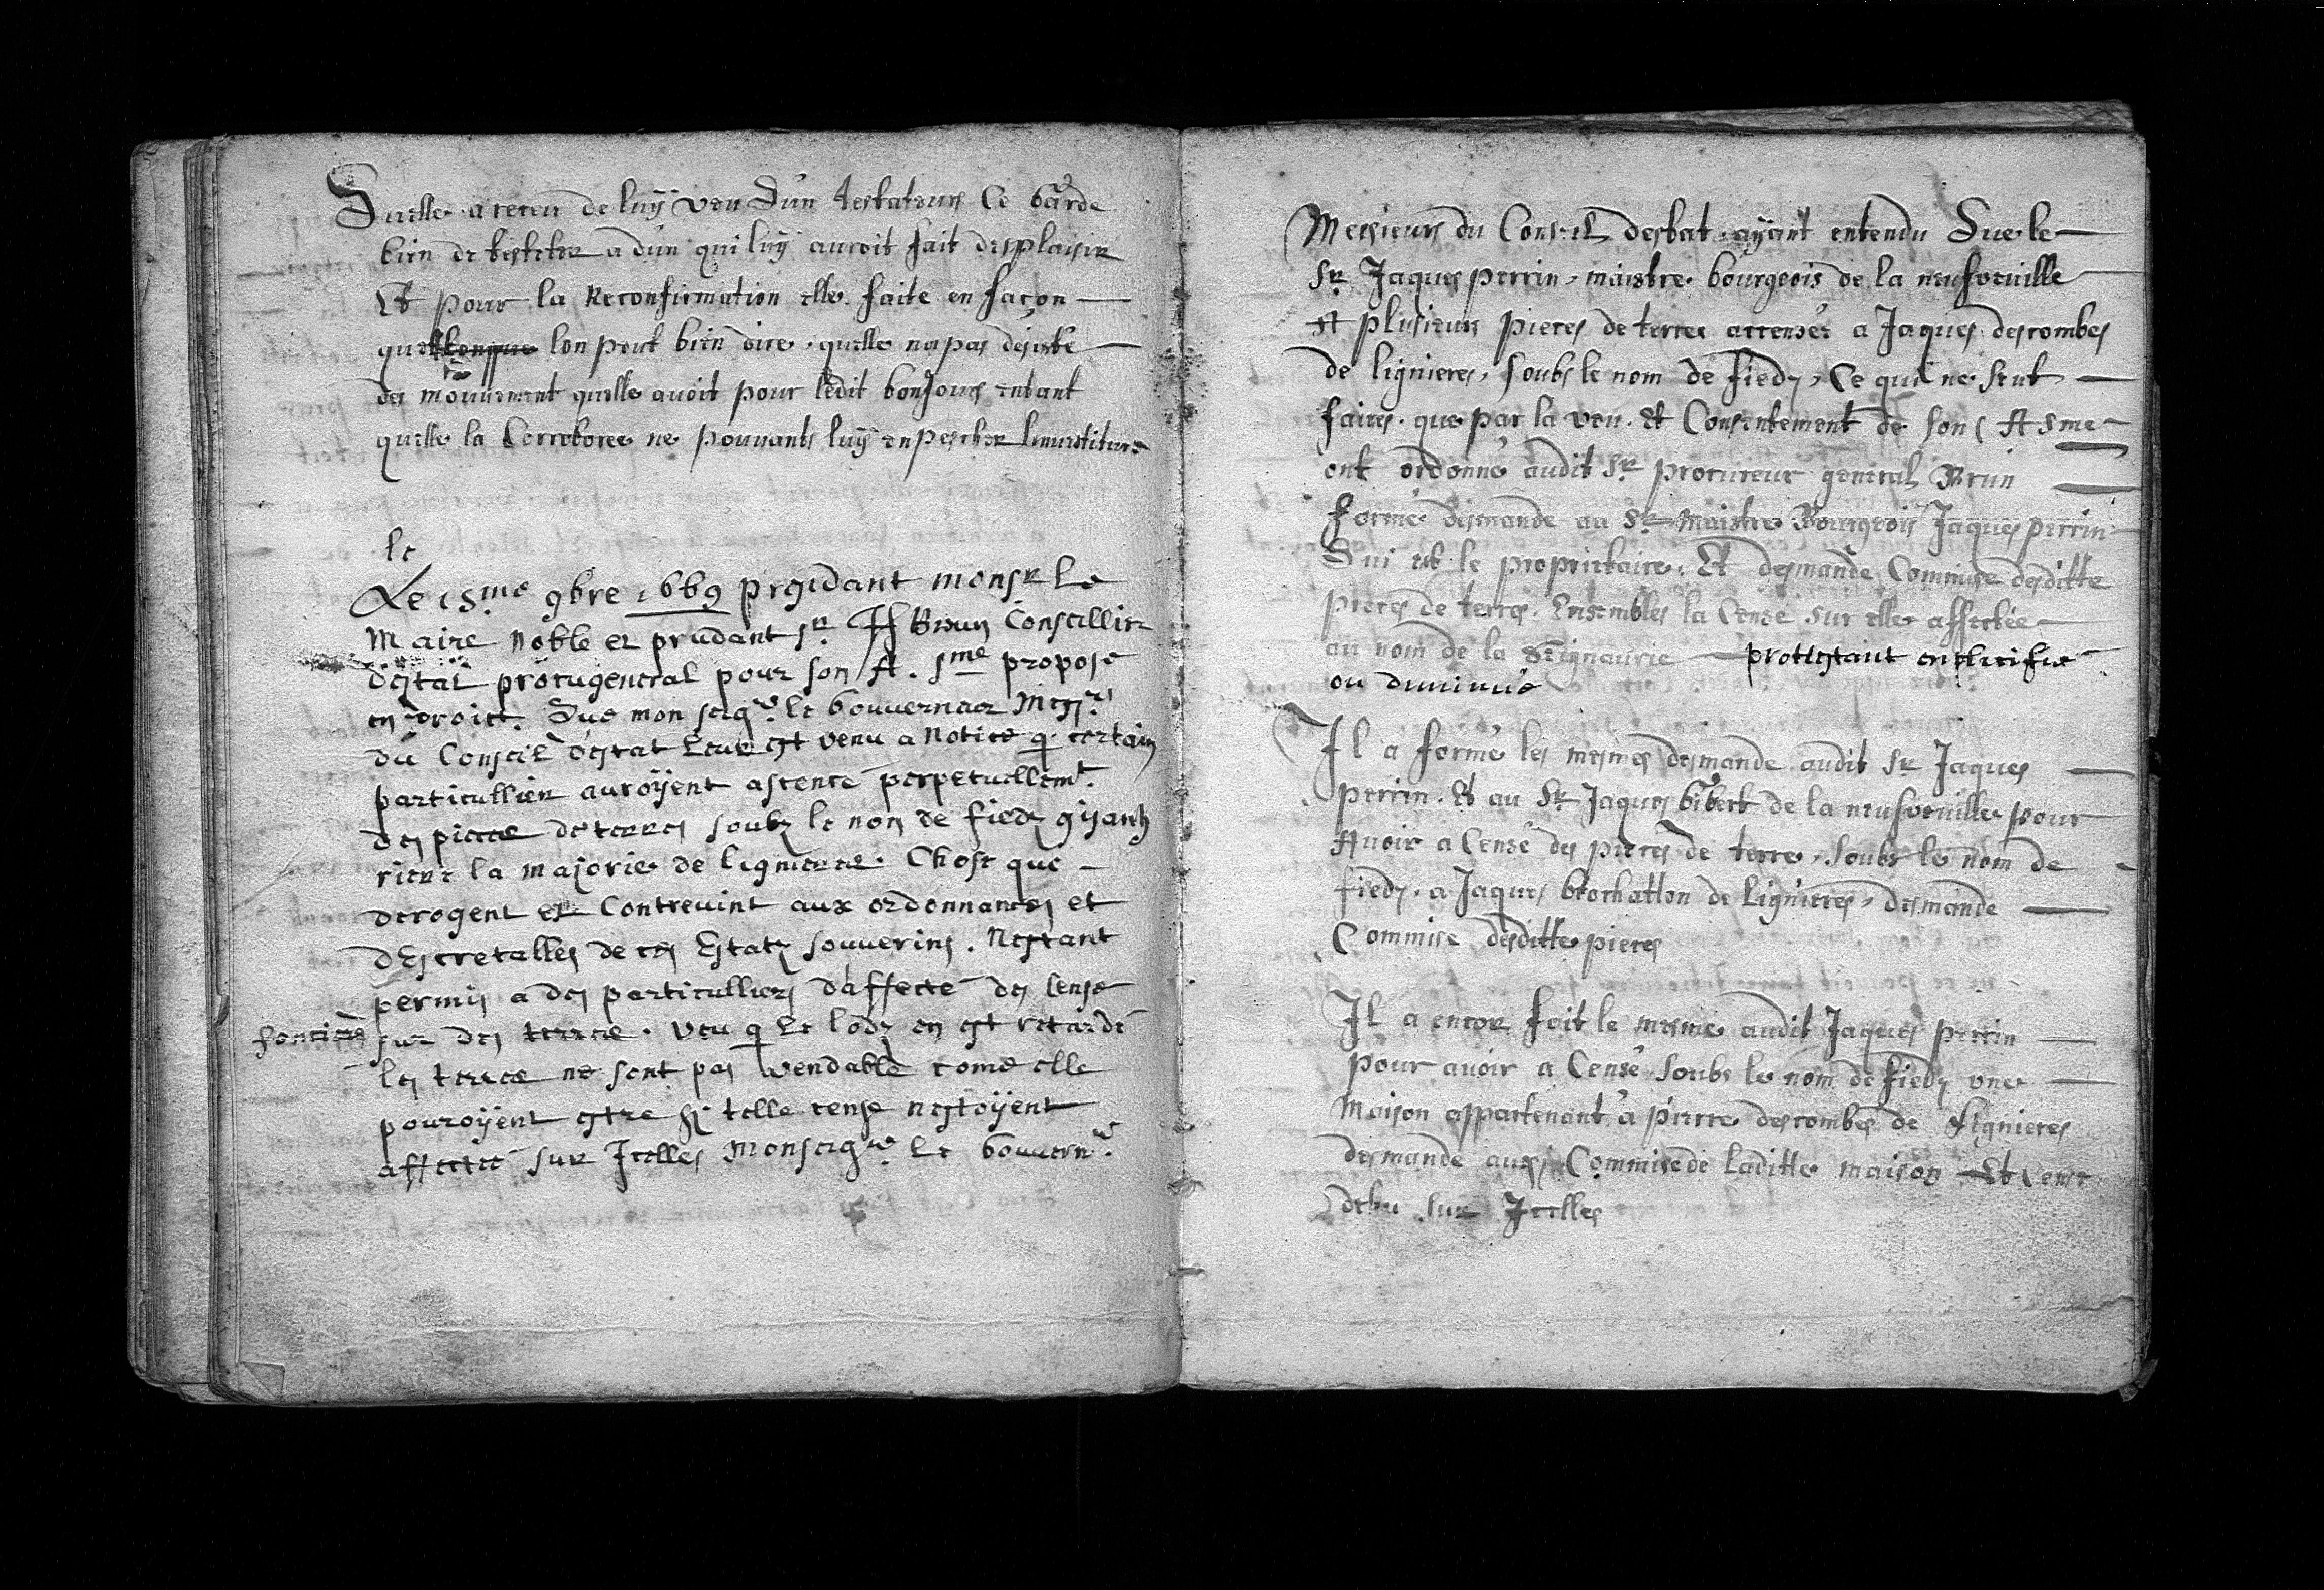 Quelle a receu de luÿ veu Qu'un testateurs Ce garde
bien de testeter a d'un qui luÿ auroit fait desplaisir
Et pour la Reconfirmation elle faite en façon
quelconque lon peut bien dire quelle na pas désisté
des mouuement quelle auoit pour ledit bonJours entant
quelle la Corroboree ne pouuants luÿ enpescher linuestiture
le
Le 15me 9bre 1669 presidant monsr le
Maire Noble et prudant sr H Brun Conseillier
destat procugeneral pour son A. Sme propose
en droict. Que mon seigr le Gouverneur Messrs
du Conseil destat Leur est venu a Notice q certain
particullier auroÿent acensé perpetuellemt
des piece de terres soubz le nom de fiedz gisantz
riere la majorie de lignieres. Chose que
derogent et Contreuint aux ordonnances et
dEscretalles de ces Estatz souverins. Nestant
permis a des particulliers d'affecté des Cense
foncière sur des terres. veu q Le lodz en est retardé
les terres ne sont pas vendable come elle
pouroÿent estre si telle cense nestoÿent
affecté sur Jcelles Monseigr Le Gouvernr
Messieurs du Conseil destat ayant entendu Que le
Sr Jaques perrin maistre bourgeois de la neufveuille
at plusieurs pieces de terres accensés a Jaques descombes
de lignieres, soubs le nom de fiedz, Ce qui ne seut
faires que par la veu et Consentement de son A Sme
ont ordonné audit Sr procureur general Brun
formé demande au Sr Maistre Bourgeois Jaques perrin
Qui est le proprietaire. Et demande Commise desditte
pieces de terres. Ensembles la Cense sur elle affectée
au nom de la Seigneurie protestant enplerifier
ou diminué
Il a formé les mesmes demande audit Sr Jaques
perrin. Et au Sr Jaques Gibert de la neufveuille pour
Auoir a Censé des pieces de terre, soubs le nom de
fiedz a Jaques beochatton de Lignieres, demande
Commise desditte pieces
Il a encor fait le mesme audit Jaques perrin
pour auoir a Censé soubs le nom de fiedz une
Maison appartenant a pierre descombes de Lignieres
demande aussi Commise de laditte maison Et cense
debu sur Jcelles